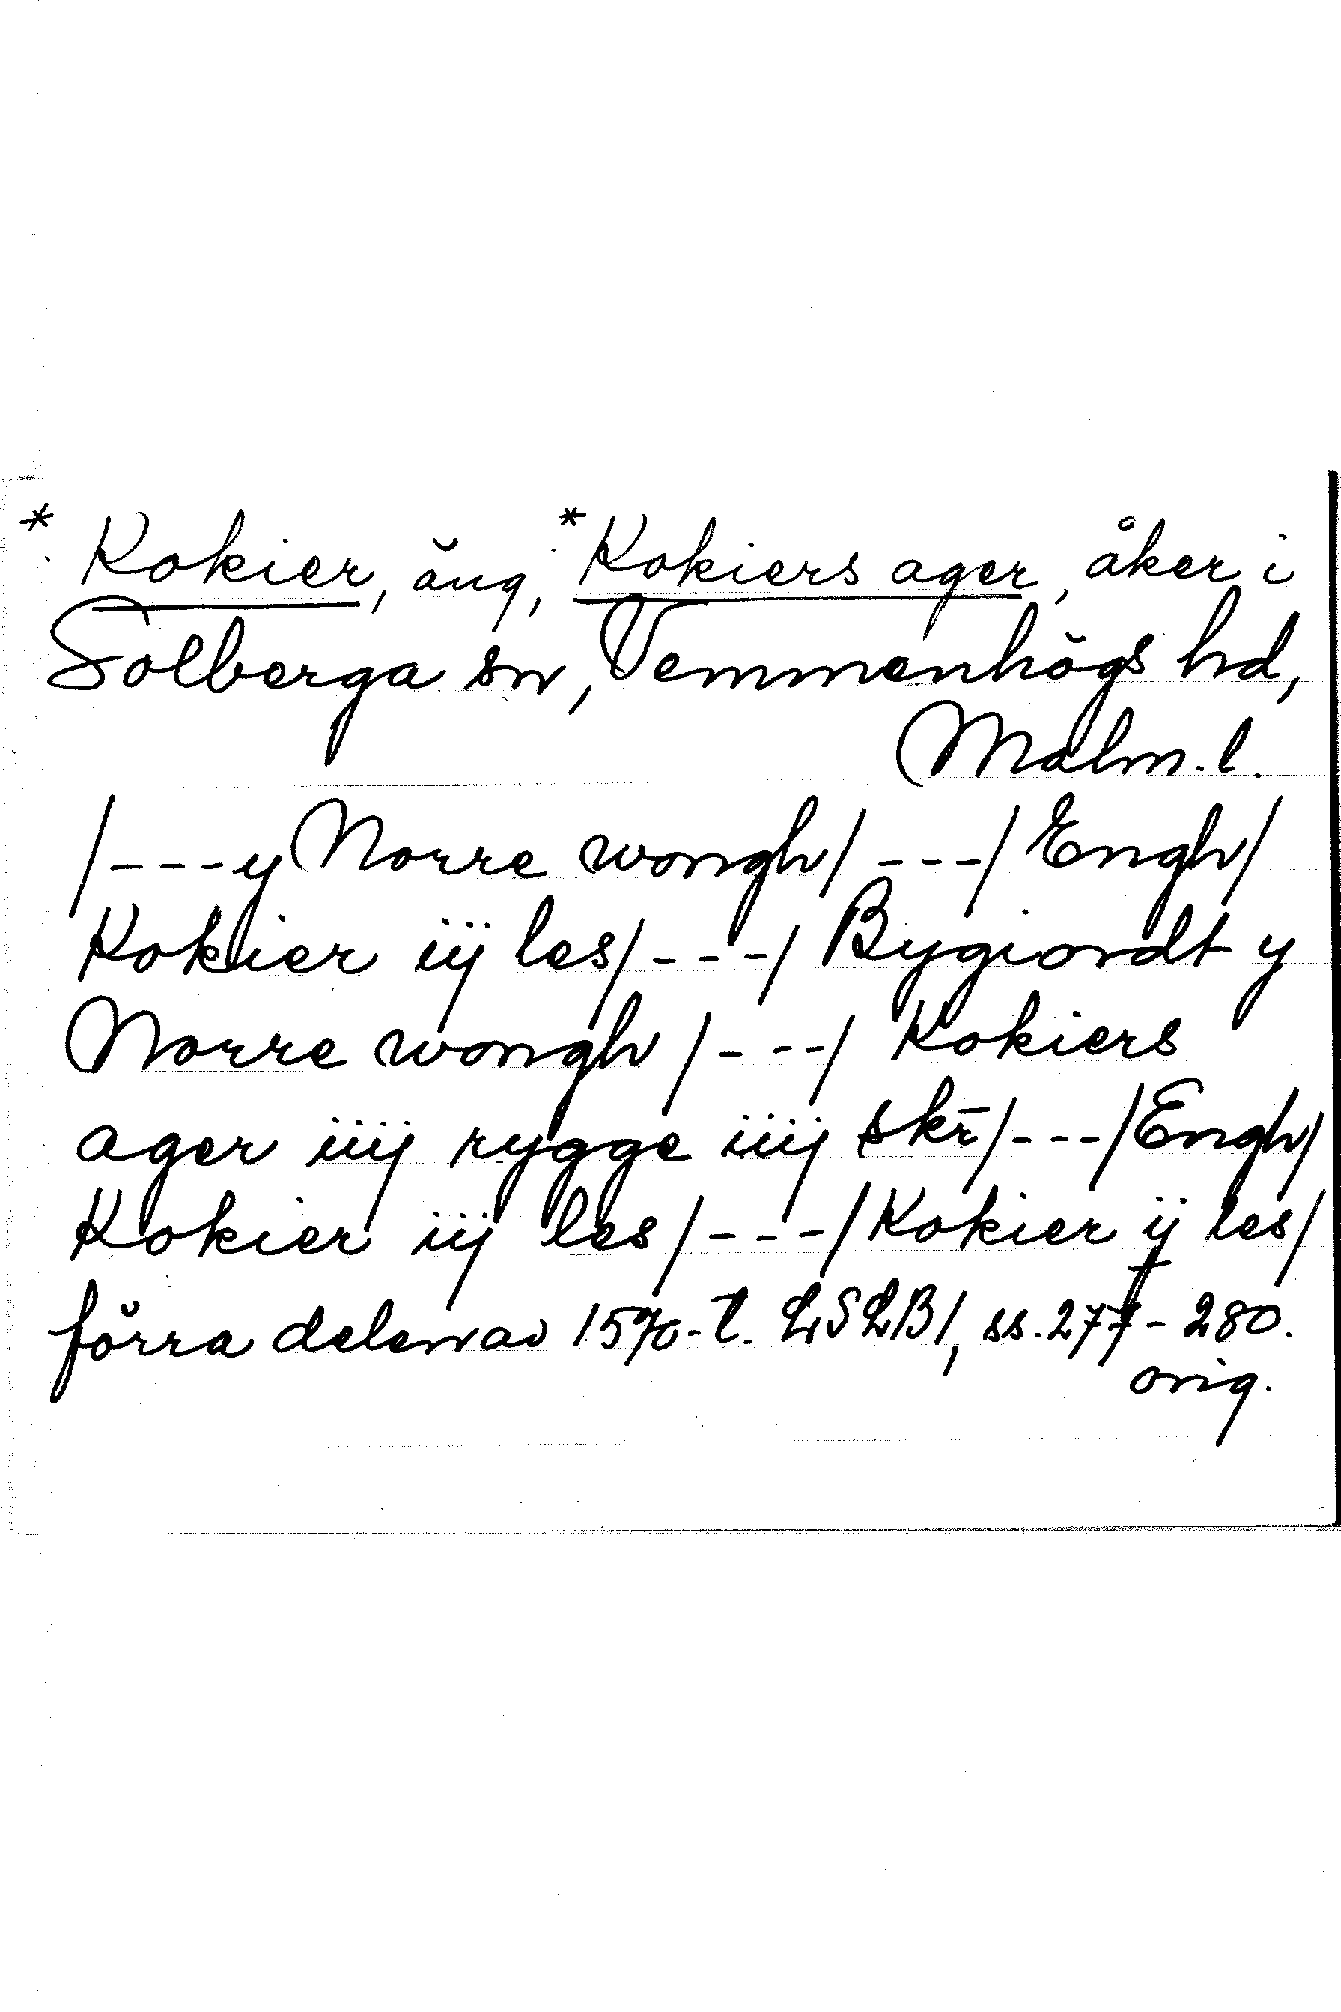 * Kokier, äng, * Kokiers ager, åker i
Solberga sn, Vemmenhögs hd,
Malm. l.
/---y Norre wongh/ ---/ Engh/
Kokier iij les/---/ Bygiordt y
Norre wongh /---/ Kokiers
ager iiij rygge iiij skr̄/---/Engh/
Kokier iij les/---/Kokier ij les/
förra delen av 1570-t. LSLB1, ss. 277-280.
orig.